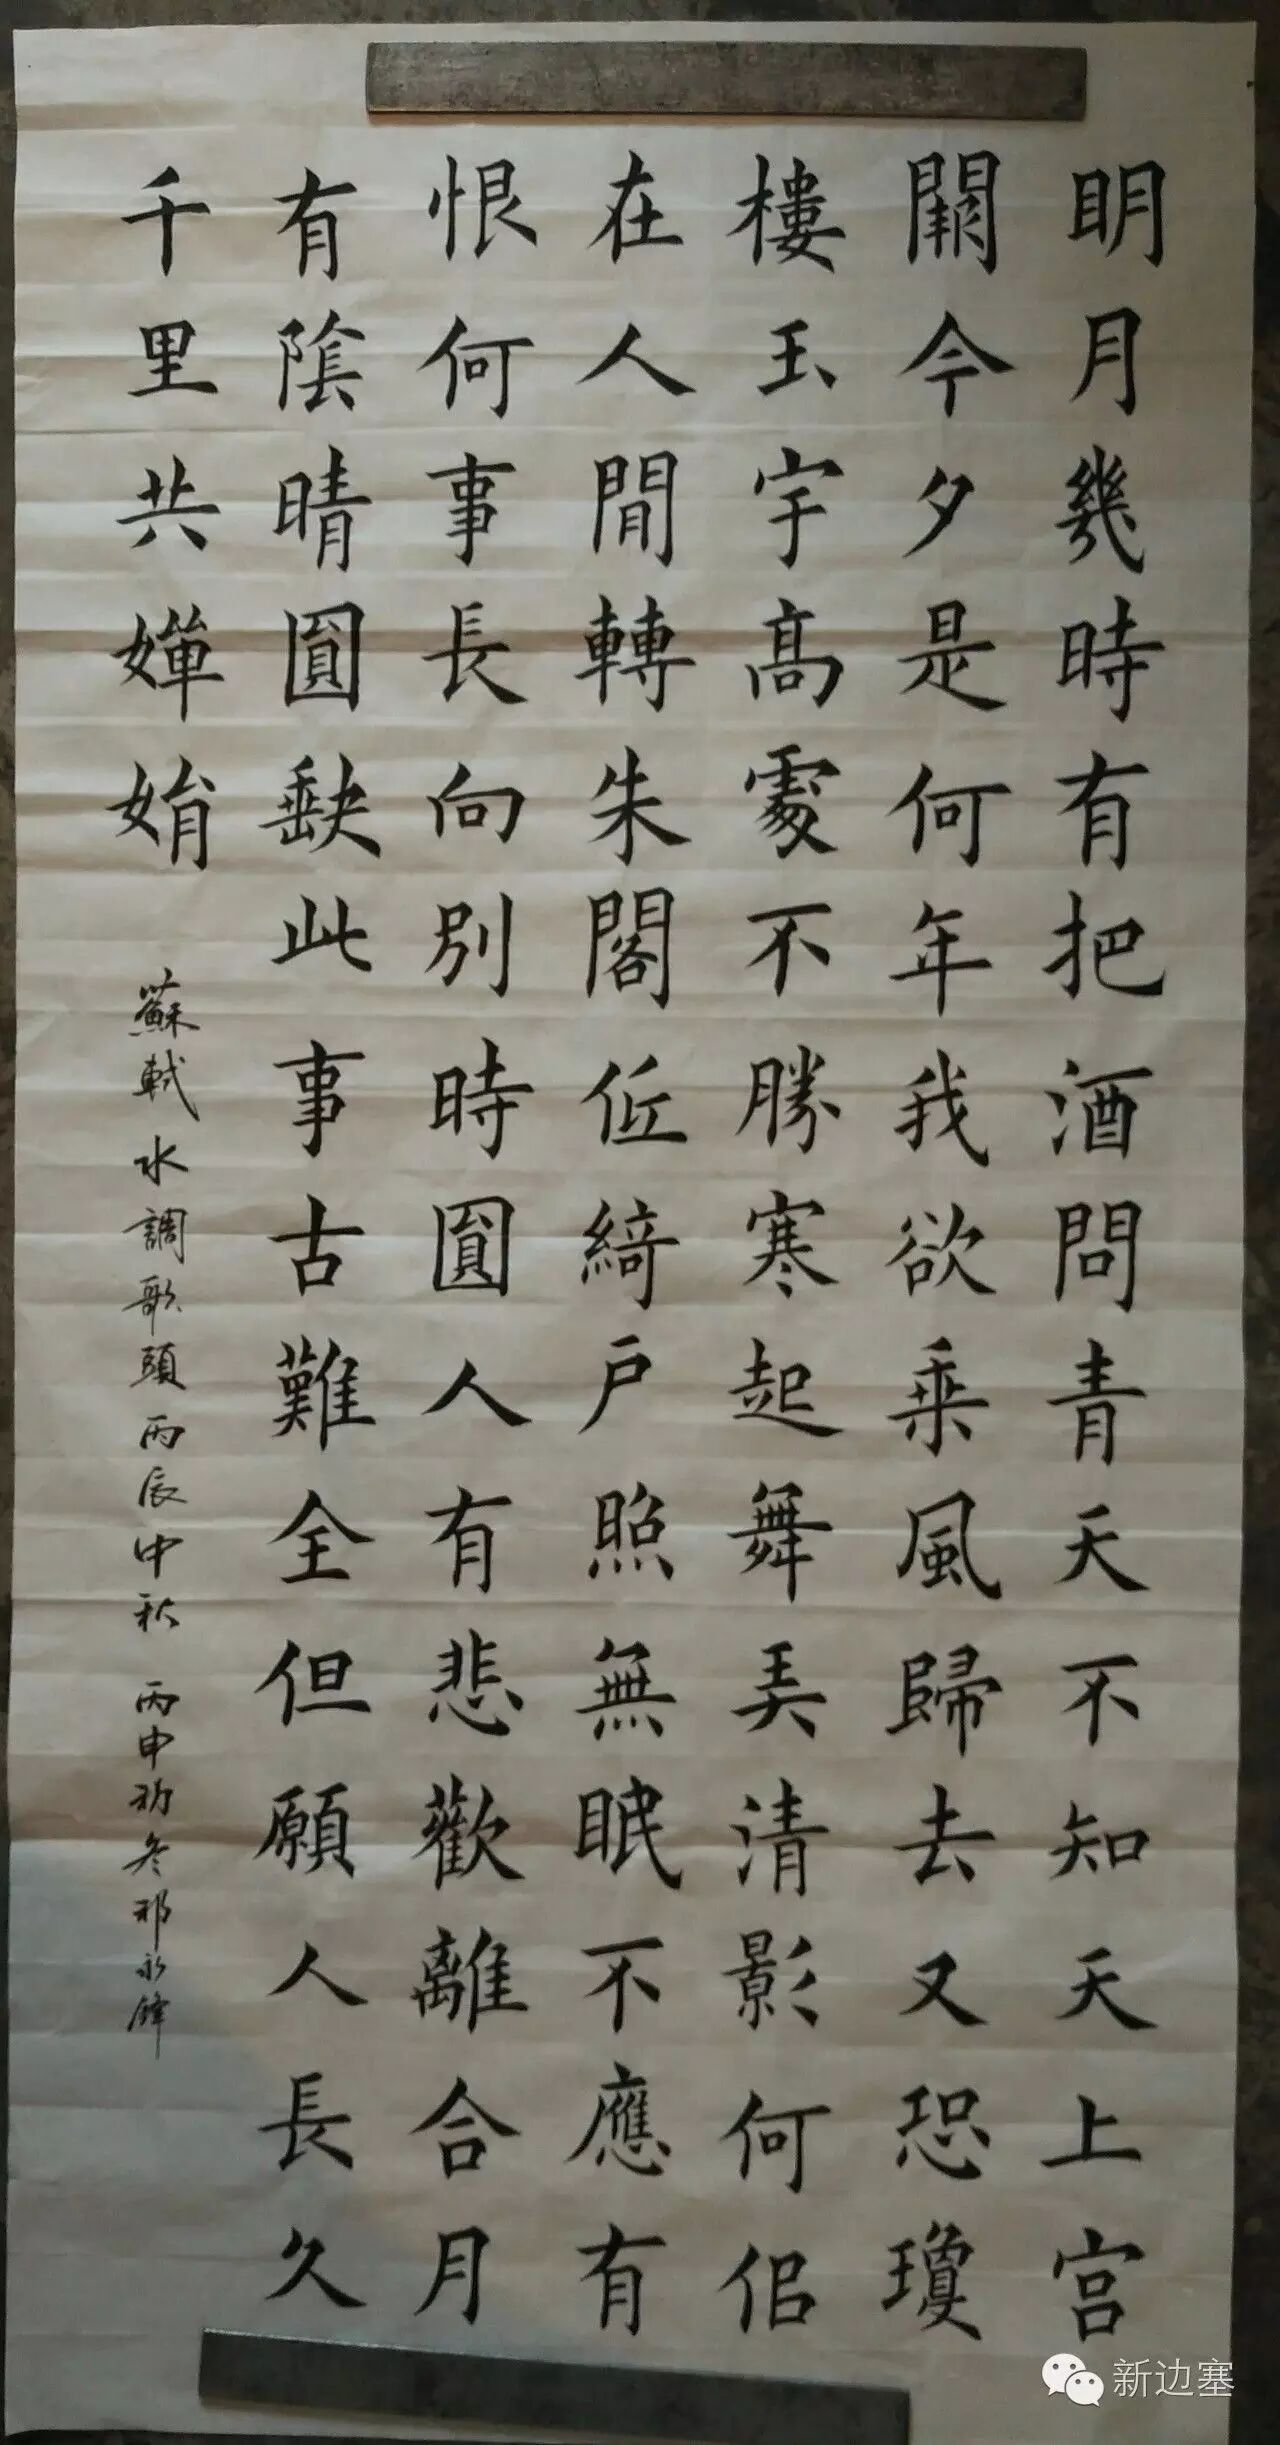 明月幾時有把酒問青天不知天上宫
闕今夕是何年我欲乘風歸去又恐瓊
樓玉宇高處不勝寒起舞弄清影何佀
在人間轉朱閣低綺户照無眠不應有
恨何事長向別時圓人有悲歡離合月
有陰晴圓缺此事古難全但願人長久
千里共嬋娟
蘇軾水調歌頭丙辰中秋 丙申初冬祁永鋒
新边塞